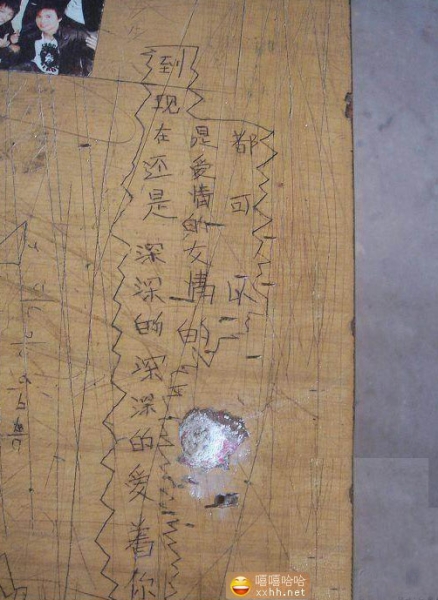 到现在还是深深的深深的爱着你
是爱情的友情的
都可以
嘻嘻哈哈
xxhh.net